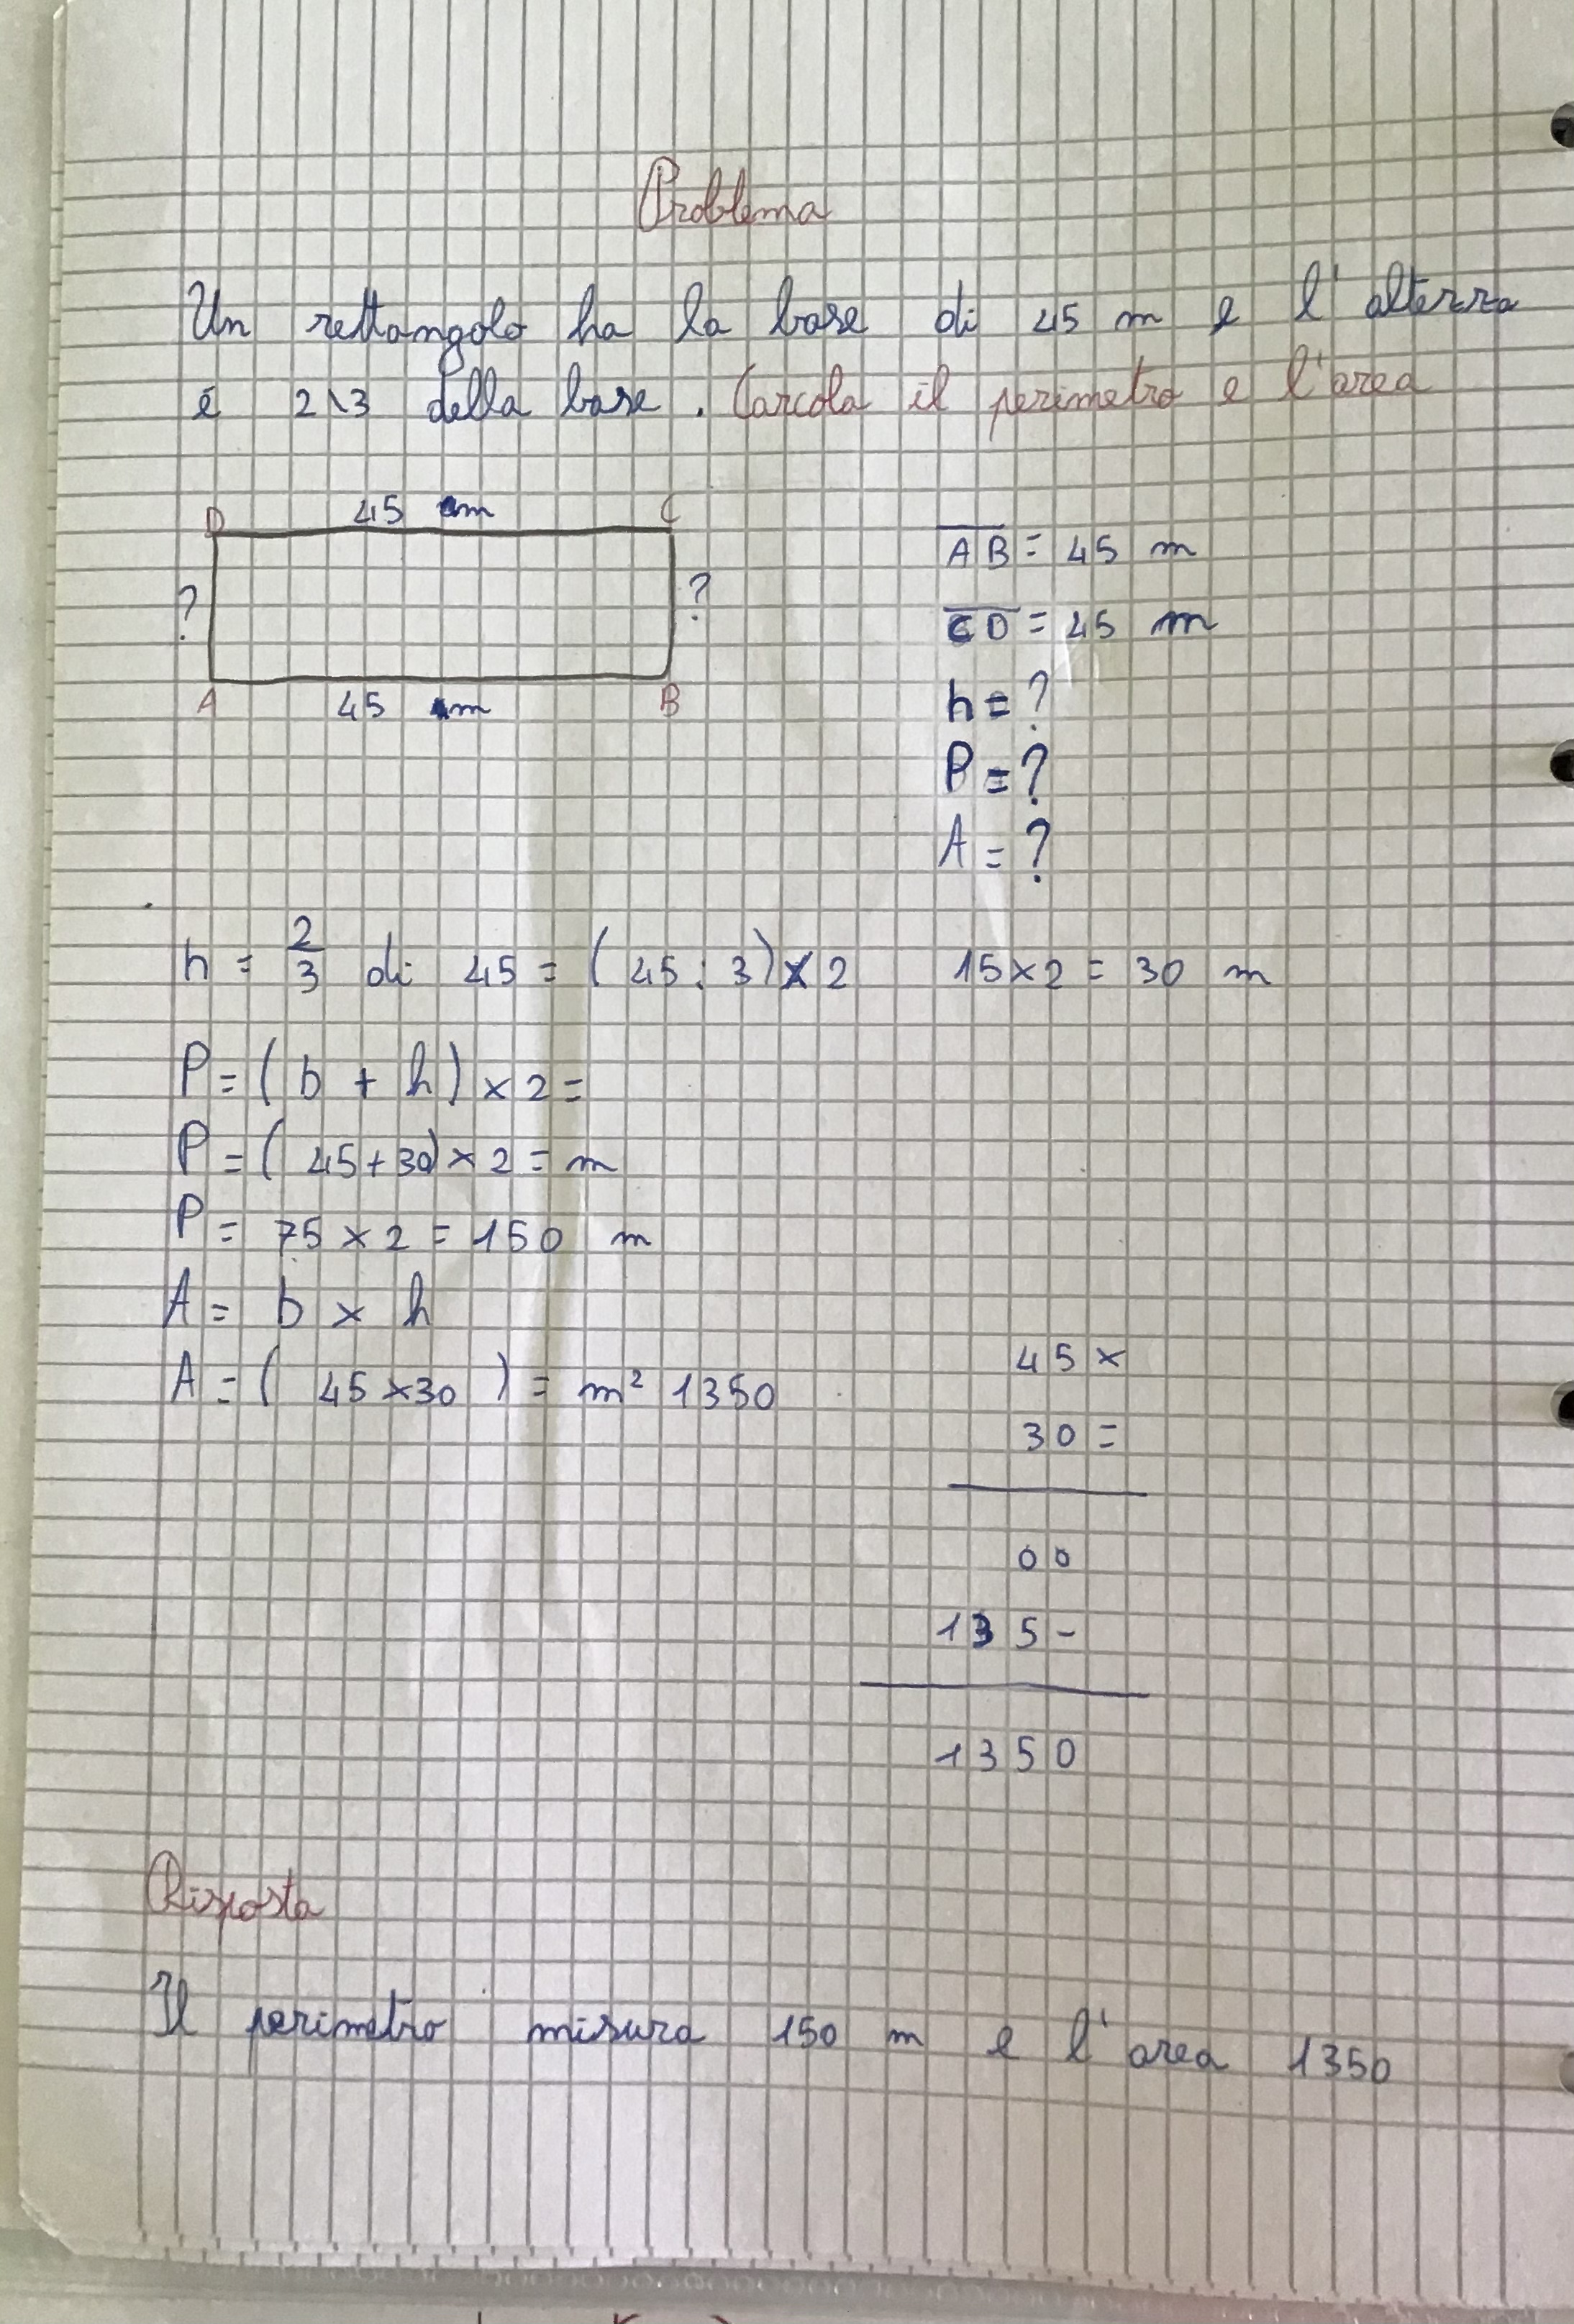 Problema
Un rettangolo ha la base di 45 m e l'altezza
é 2\3 della base. Carcola il perimetro e l'area
D 45 m C
? ?
A 45 m B
AB = 45 m
CD = 45 m
h = ?
P = ?
A = ?
h = 2/3 di 45 = (45 : 3) x 2 15 x 2 = 30 m
P = ( b + h ) x 2 =
P = ( 45 + 30) x 2 = m
P = 75 x 2 = 150 m
A = b x h
A = ( 45 x 30 ) = m² 1350
45 x
30 =
00
135 -
1350
Risposta
Il perimetro misura 150 m e l'area 1350